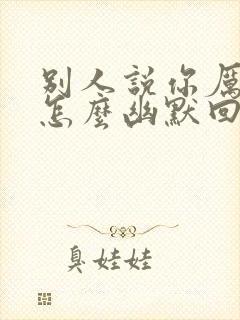 別人說你厲
怎麼幽默回
臭娃娃